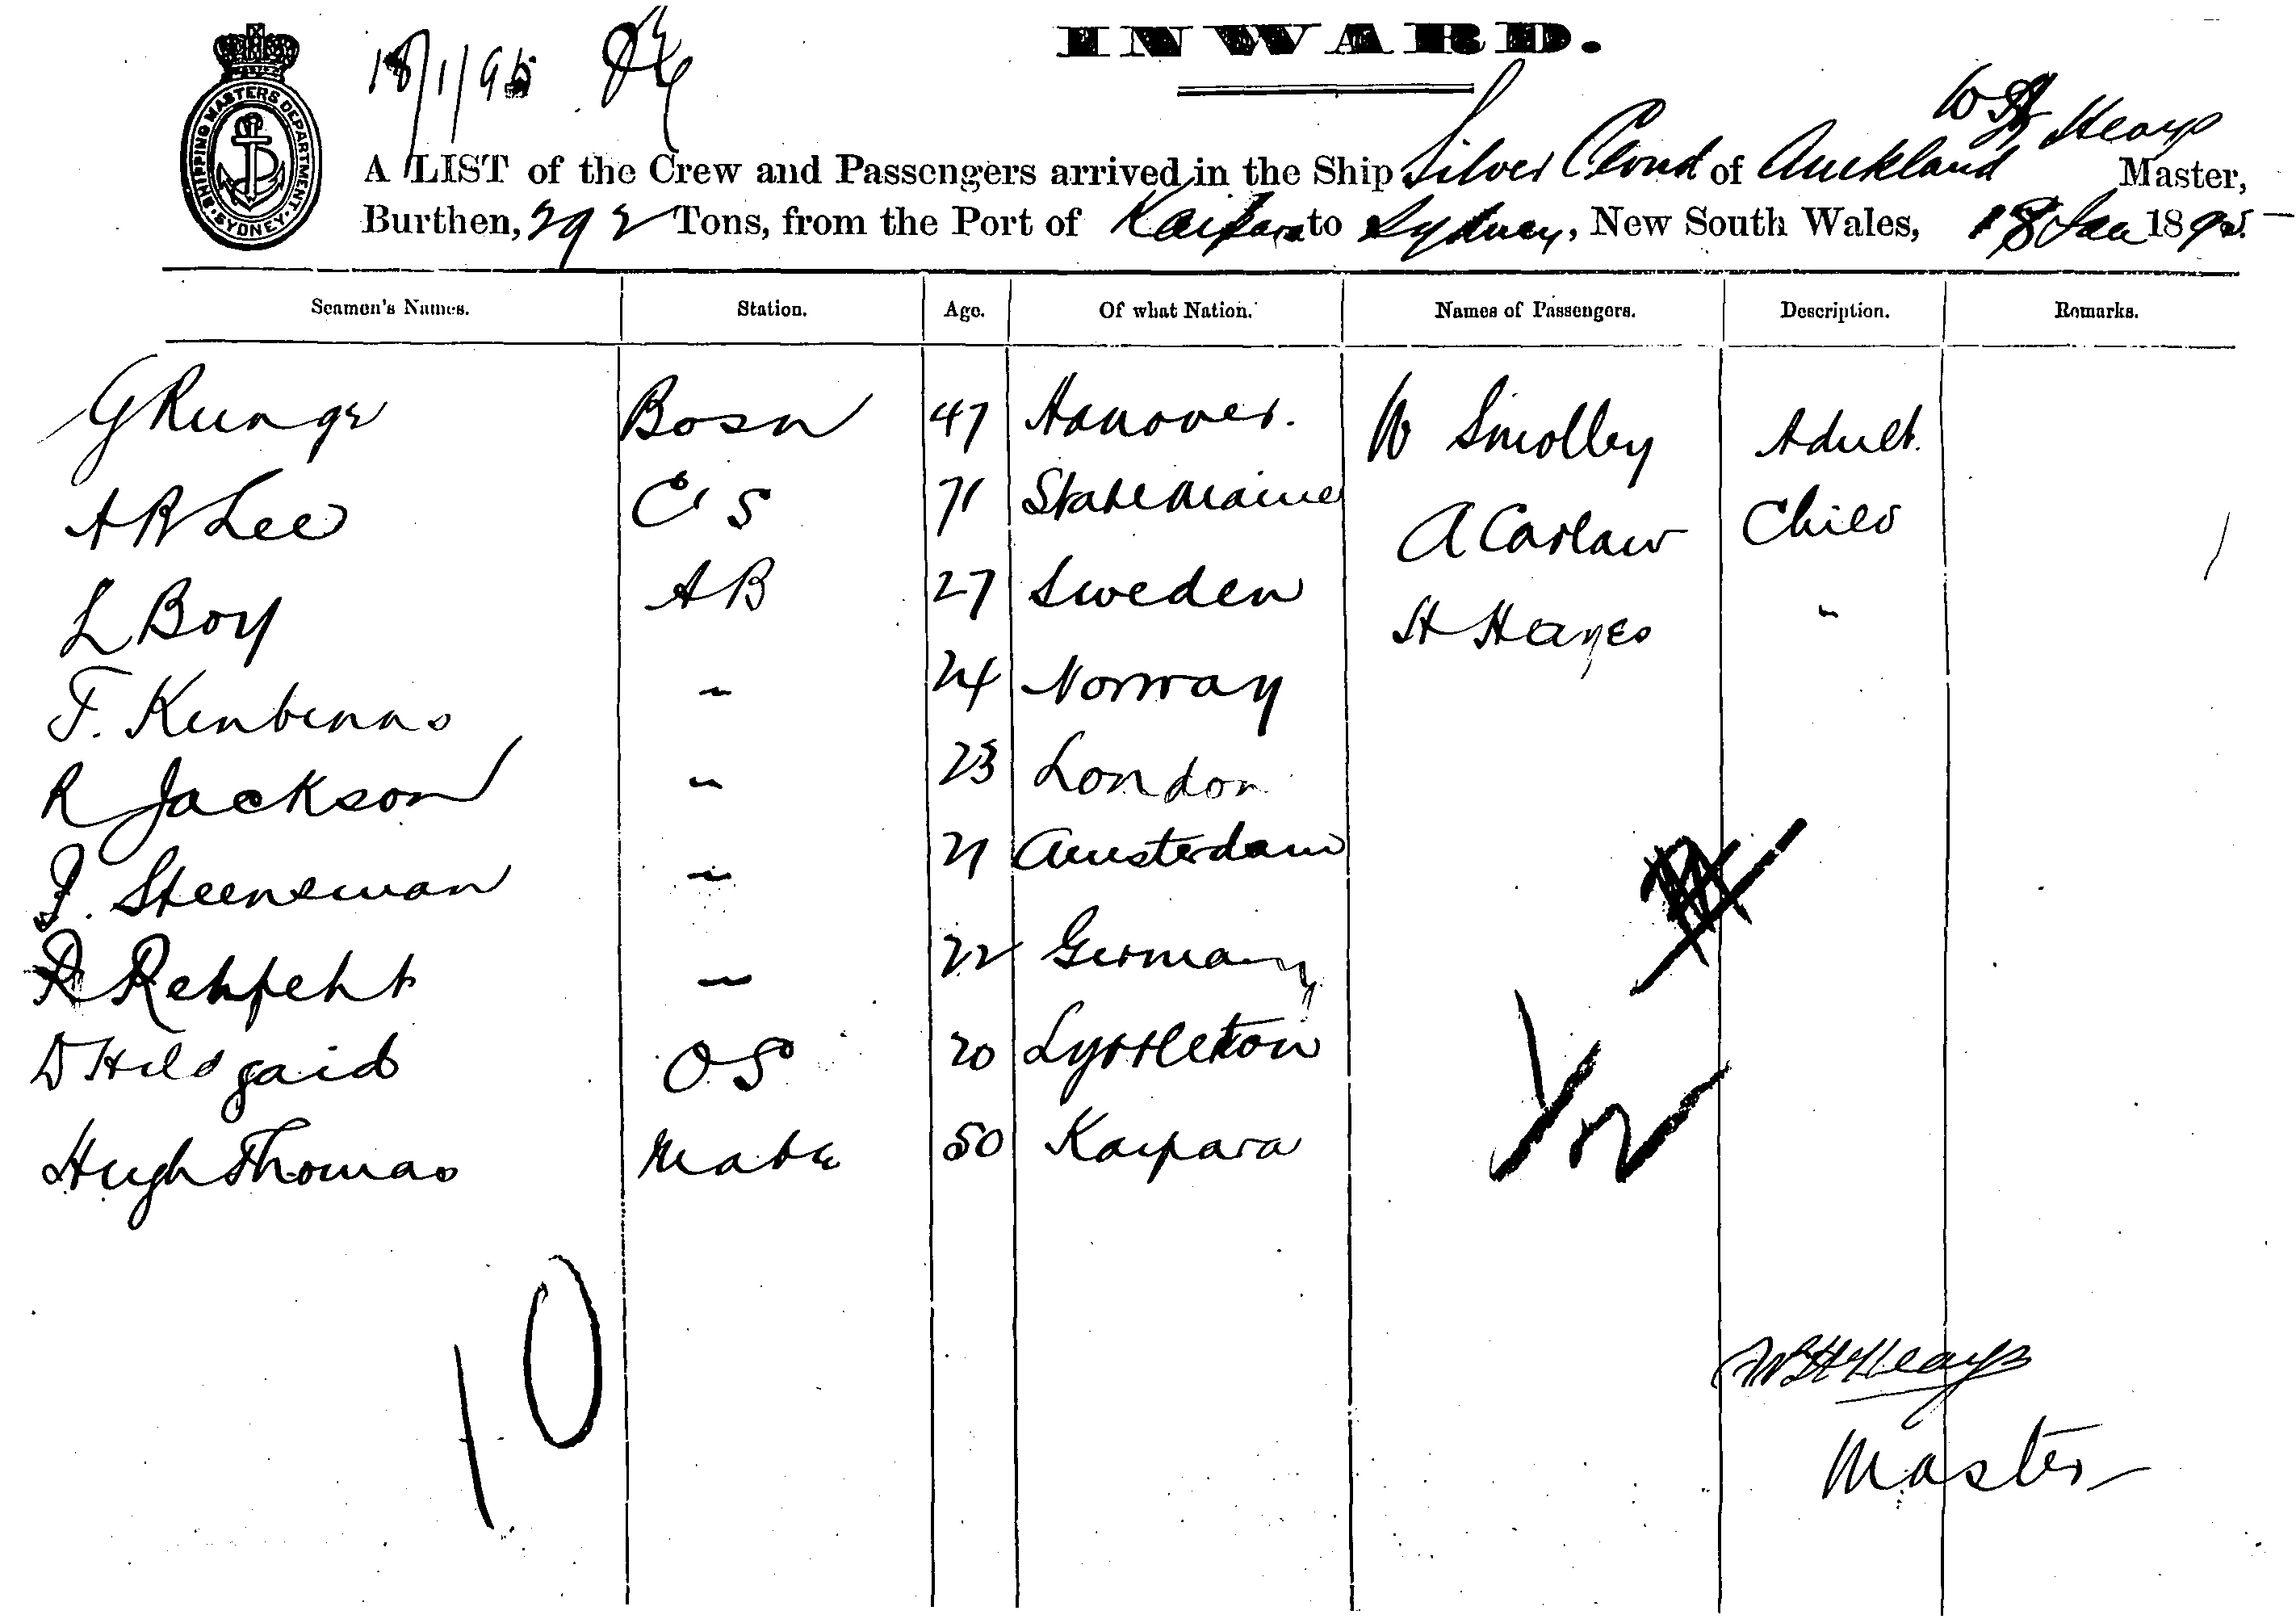 INWARD.
18/1/95
SHIPPING MASTERS DEPARTMENT. SYDNEY.
W H Heays
A LIST of the Crew and Passengers arrived in the Ship Silver Cloud of Auckland Master,
Burthen, 292 Tons, from the Port of Kaipara to Sydney, New South Wales, 18 Jan 1895.
Seamen's Names. Station. Age. Of what Nation. Names of Passengers. Description. Remarks.
G Runge Bosn 47 Hanover. W Smolley Adult.
A R Lee C S 71 State Maine A Carlaw Child
L Boy AB 27 Sweden H Heayes "
F. 24 Norway
R Jackson " 23 London
J. Steensman " 21 Amsterdam
R Rehfeht " 22 Germany
D OS 20 Lyttleton
Hugh Thomas Mate 50 Kaipara
10
W H Heays
Master